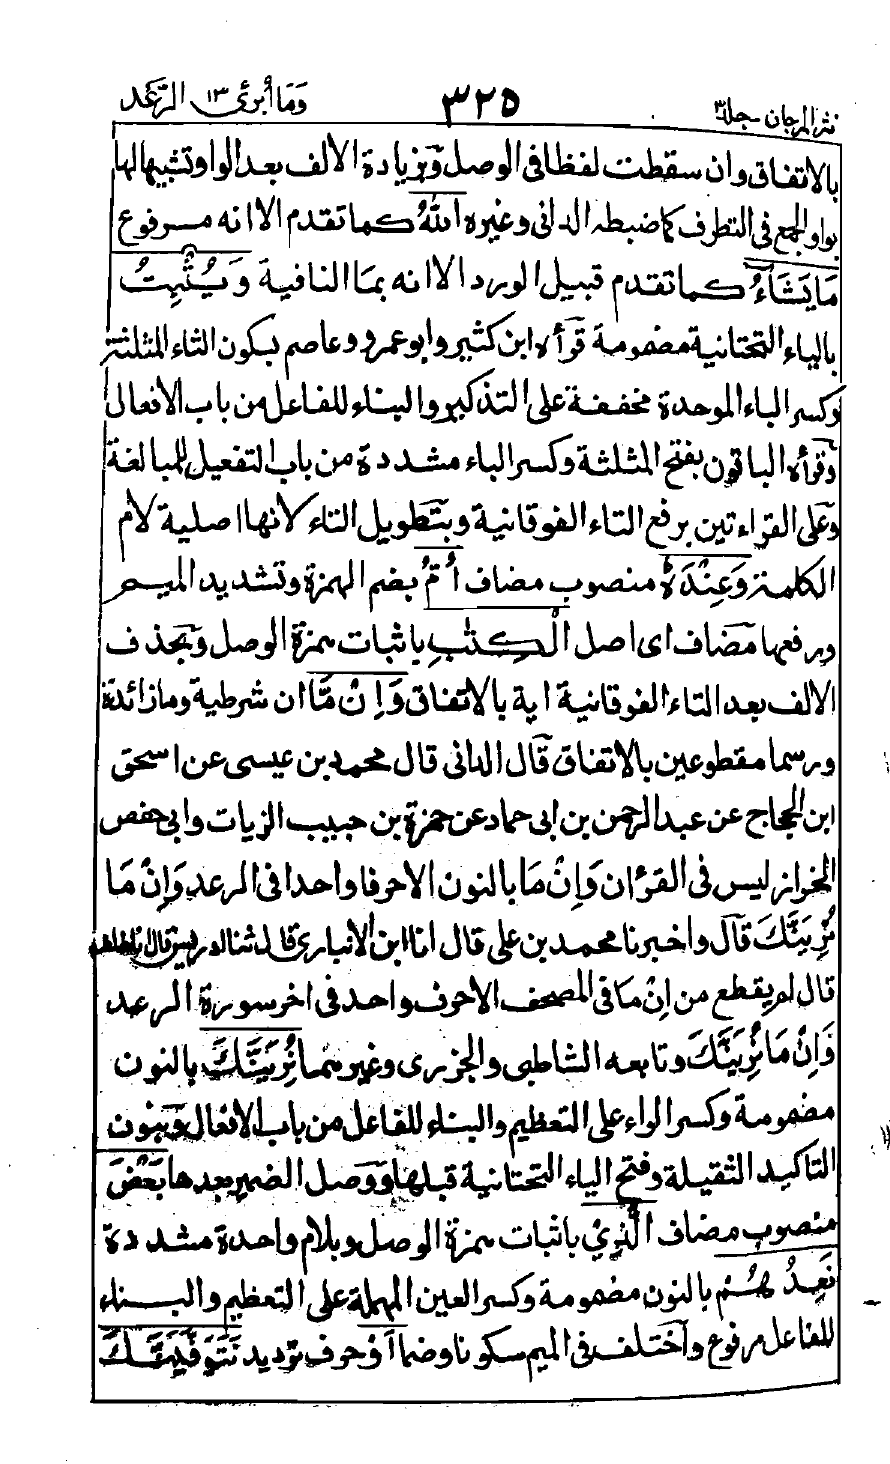 نثر المرجان جلد٣ ٣٢٥ وما أبرئ ١٣ الرعد
بالاتفاق وان سقطت لفظا في الوصل وبزيادة الالف بعد الواو تشبيها لها
بواو الجمع في التطرف كما ضبطه الداني وغيره اللهُ كما تقدم الا انه مرفوع
مَا يَشَاءُ كما تقدم قبيل الورد الا انه بما النافية وَيُثْبِتُ
بالياء التحتانية مضمومة قرأه ابن كثير وابو عمرو وعاصم بسكون الثاء المثلثة
وكسر الباء الموحدة مخففة على التذكير والبناء للفاعل من باب الافعال
وقرأه الباقون بفتح المثلثة وكسر الباء مشددة من باب التفعيل للمبالغة
وعلى القراءتين برفع التاء الفوقانية وبتطويل التاء لانها اصلية لام
الكلمة وَعِنْدَهٗ منصوب مضاف اُمُّ بضم الهمزة وتشديد الميم
ورفعها مضاف اى اصل الْكِتٰبِ باثبات همزة الوصل وبحذف
الالف بعد التاء الفوقانية اية بالاتفاق وَاِنْ مَّا ان شرطية وما زائدة
ورسما مقطوعين بالاتفاق قال الداني قال محمد بن عيسى عن اسحق
ابن الحجاج عن عبد الرحمن بن ابى حماد عن حمزة بن حبيب الزيات وابى حفص
الخراز ليس في القرءان وَاِنْ مَا بالنون الا حرفا واحدا في الرعد وَاِنْ مَا
نُرِيَنَّكَ قال واخبرنا محمد بن على قال انا ابن الانبارى قال ثنا ادريس قال انا خلف
قال لم يقطع من اِنْ مَا في المصحف الا حرف واحد في اخر سورة الرعد
وَاِنْ مَا نُرِيَنَّكَ وتابعه الشاطبى والجزرى وغيرهما نُرِيَنَّكَ بالنون
مضمومة وكسر الراء على التعظيم والبناء للفاعل من باب الافعال وبنون
التاكيد الثقيلة وفتح الياء التحتانية قبلها ووصل الضمير بعدها بَعْضَ
منصوب مضاف الَّذِيْ باثبات همزة الوصل وبلام واحدة مشددة
نَعِدُهُمْ بالنون مضمومة وكسر العين المهملة على التعظيم والبناء
للفاعل مرفوع واختلف في الميم سكونا وضما اَوْ حرف ترديد نَتَوَفَّيَنَّكَ